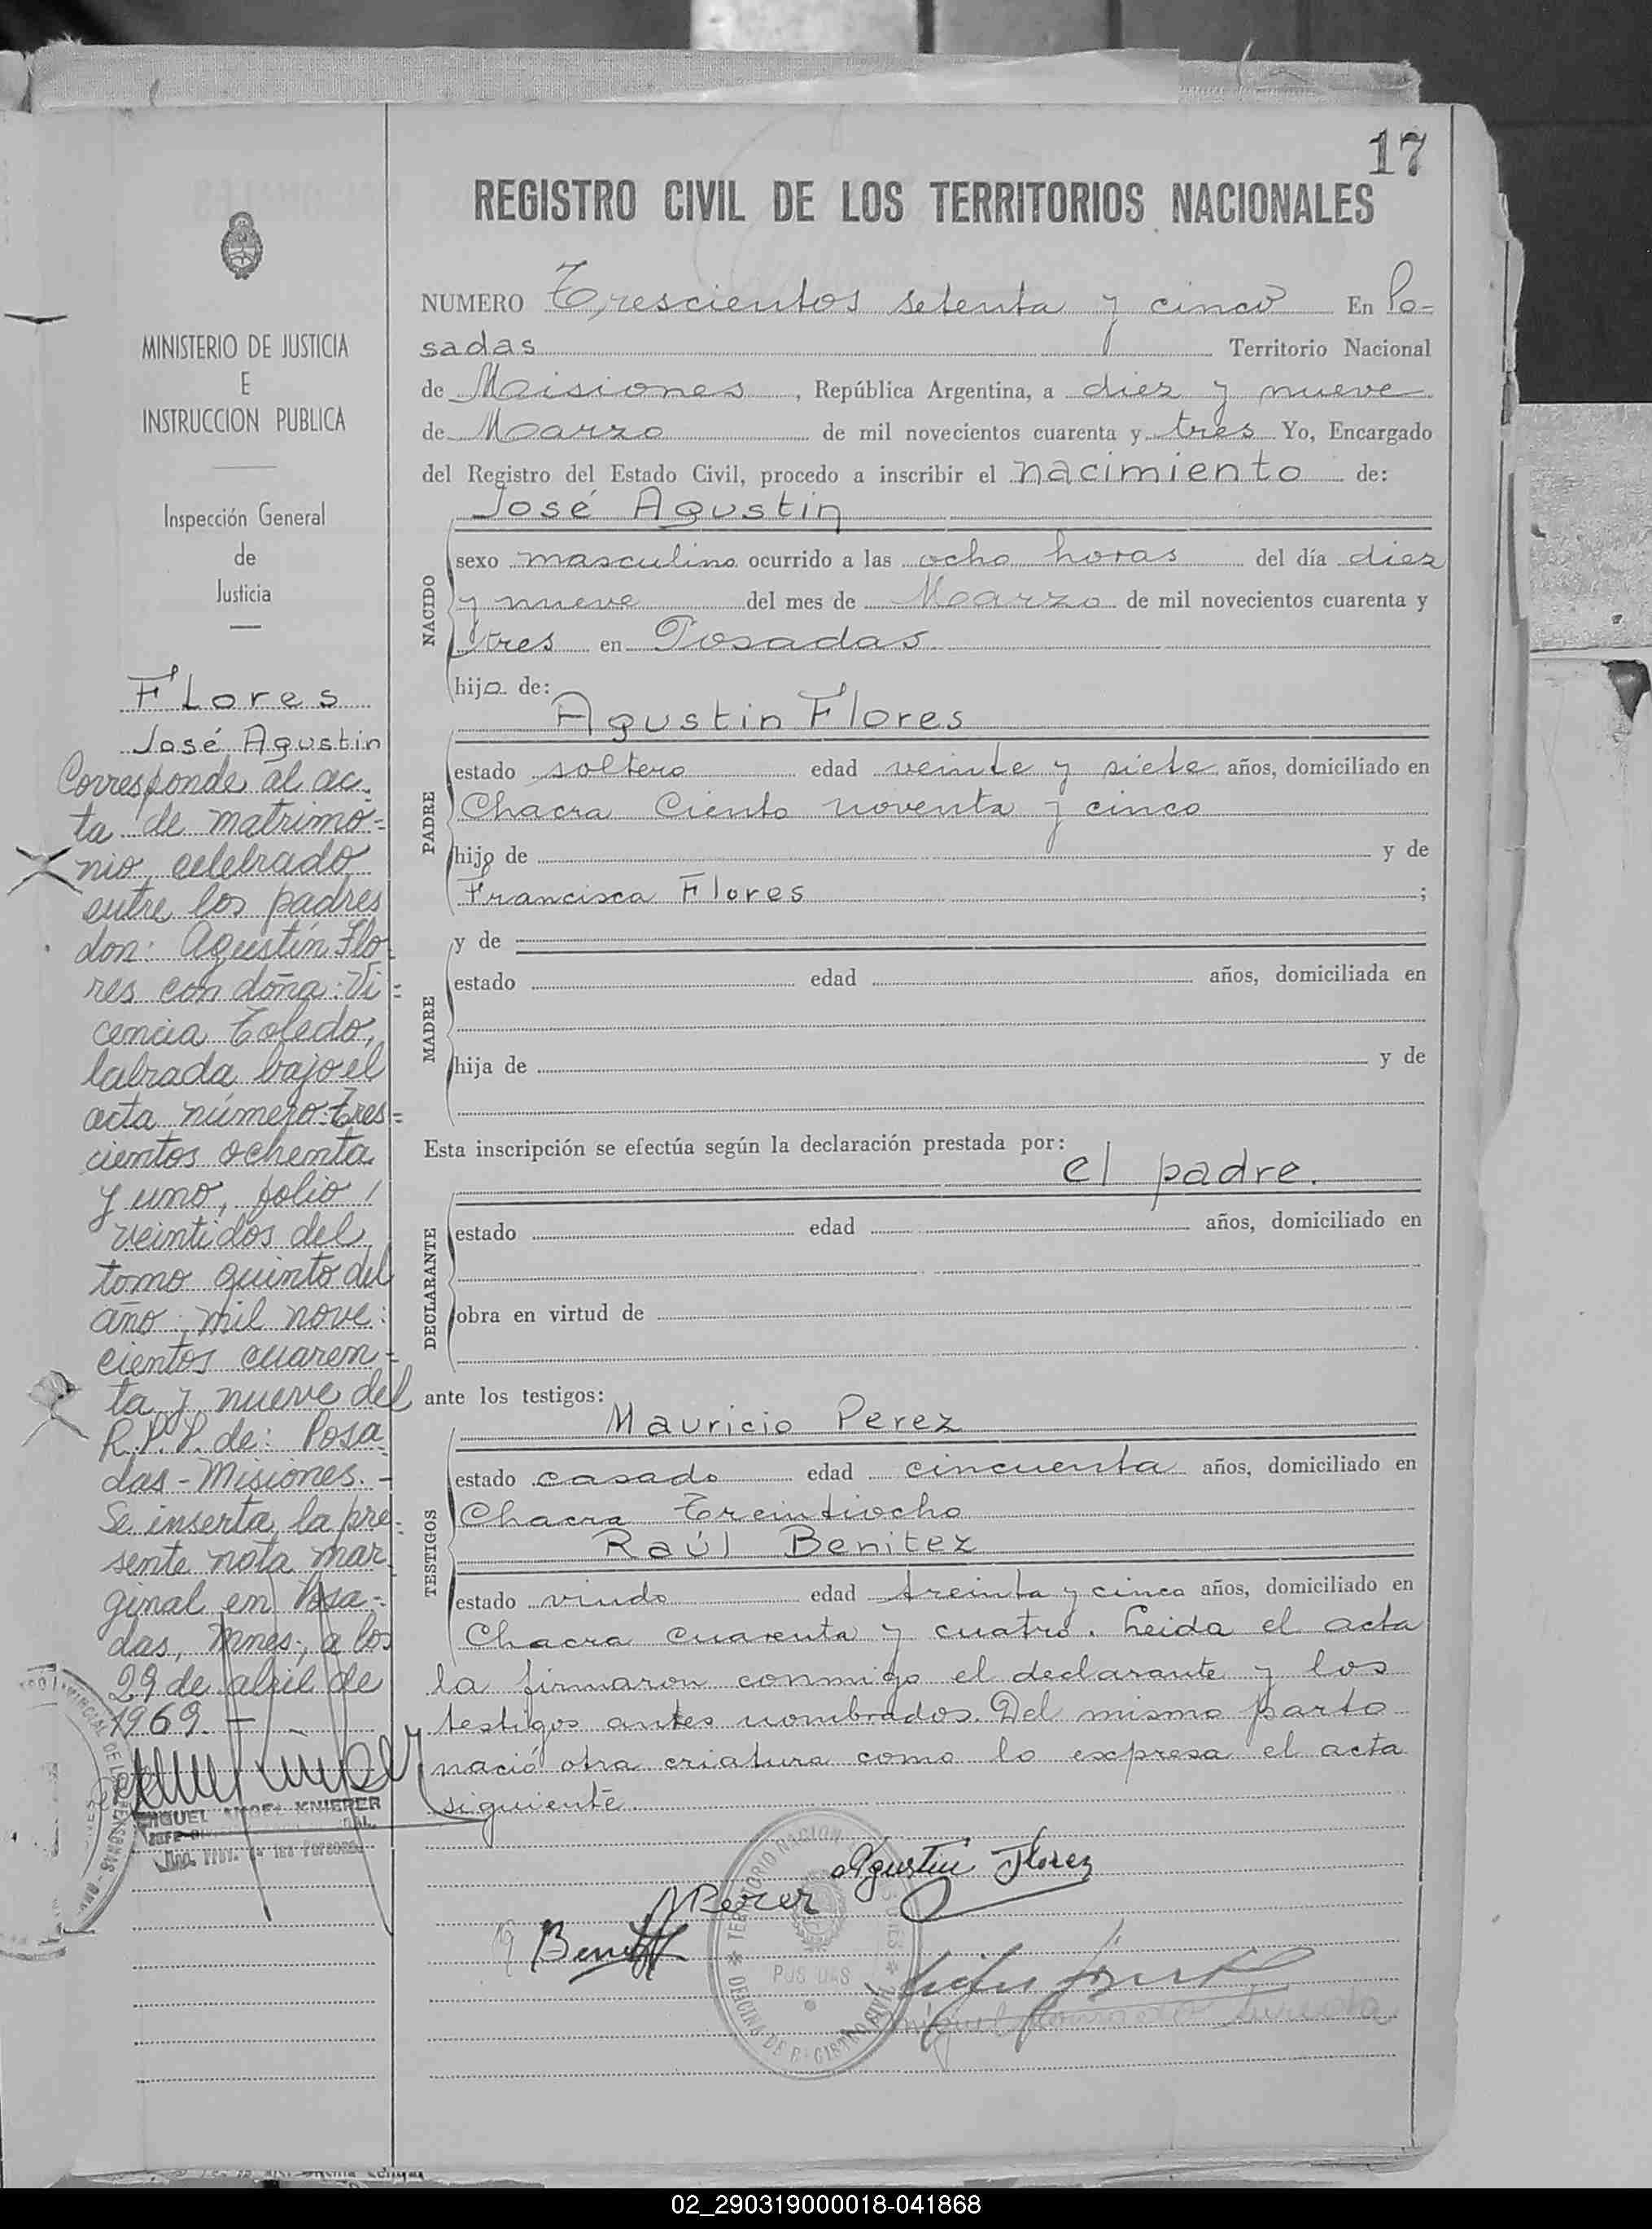 17
REGISTRO CIVIL DE LOS TERRITORIOS NACIONALES
MINISTERIO DE JUSTICIA
E
INSTRUCCION PUBLICA
Inspección General
de
Justicia
Flores
José Agustin
Corresponde al ac-
ta de matrimo=
nio celebrado
entre los padres
don: Agustín Flo-
res con doña: Vi=
cencia Toledo,
labrada bajo el
acta número: tres=
cientos ochenta
y uno, folio
veintidos del
tomo quinto del
año: mil nove:
cientos cuaren=
ta y nueve del
R.P.P. de: Posa
das - Misiones. -
Se inserta la pre-
sente nota mar
ginal en Posa-
das, Mnes; a los
29 de abril de
1969. -
MIGUEL ANGEL KNIERER
NUMERO Trescientos setenta y cinco En Po-
sadas Territorio Nacional
de Misiones, República Argentina, a diez y nueve
de Marzo de mil novecientos cuarenta y tres Yo, Encargado
del Registro del Estado Civil, procedo a inscribir el nacimiento de:
José Agustin
NACIDO
sexo masculino ocurrido a las ocho horas del día diez
y nueve del mes de Marzo de mil novecientos cuarenta y
tres en Posadas
hijo de:
Agustin Flores
PADRE
estado soltero edad veinte y siete años, domiciliado en
Chacra Ciento noventa y cinco
hijo de y de
Francisca Flores ;
MADRE
y de
estado edad años, domiciliada en
hija de y de
Esta inscripción se efectúa según la declaración prestada por:
el padre.
DECLARANTE
estado edad años, domiciliado en
obra en virtud de
ante los testigos:
Mauricio Perez
TESTIGOS
estado casado edad cincuenta años, domiciliado en
Chacra Treintiocho
Raúl Benitez
estado viudo edad treinta y cinco años, domiciliado en
Chacra cuarenta y cuatro. Leida el acta
la firmaron conmigo el declarante y los
testigos antes nombrados. Del mismo parto
nació otra criatura como lo expresa el acta
siguiente.
Agustin Florez
MPerez
02_290319000018-041868